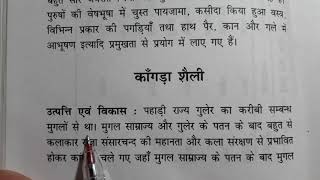 पुरुषों की वेषभूषा में चुस्त पायजामा, कसीदा किया हुआ वस्त्र,
विभिन्न प्रकार की पगड़ियाँ तथा हाथ पैर, कान और गले में
आभूषण इत्यादि प्रमुखता से प्रयोग में लाए गए हैं।
काँगड़ा शैली
उत्पत्ति एवं विकास : पहाड़ी राज्य गुलेर का करीबी सम्बन्ध
मुगलों से था। मुगल साम्राज्य और गुलेर के पतन के बाद बहुत से
कलाकार संसारचन्द की महानता और कला संरक्षण से प्रभावित
होकर चले गए जहाँ मुगल साम्राज्य के पतन के बाद मुगल